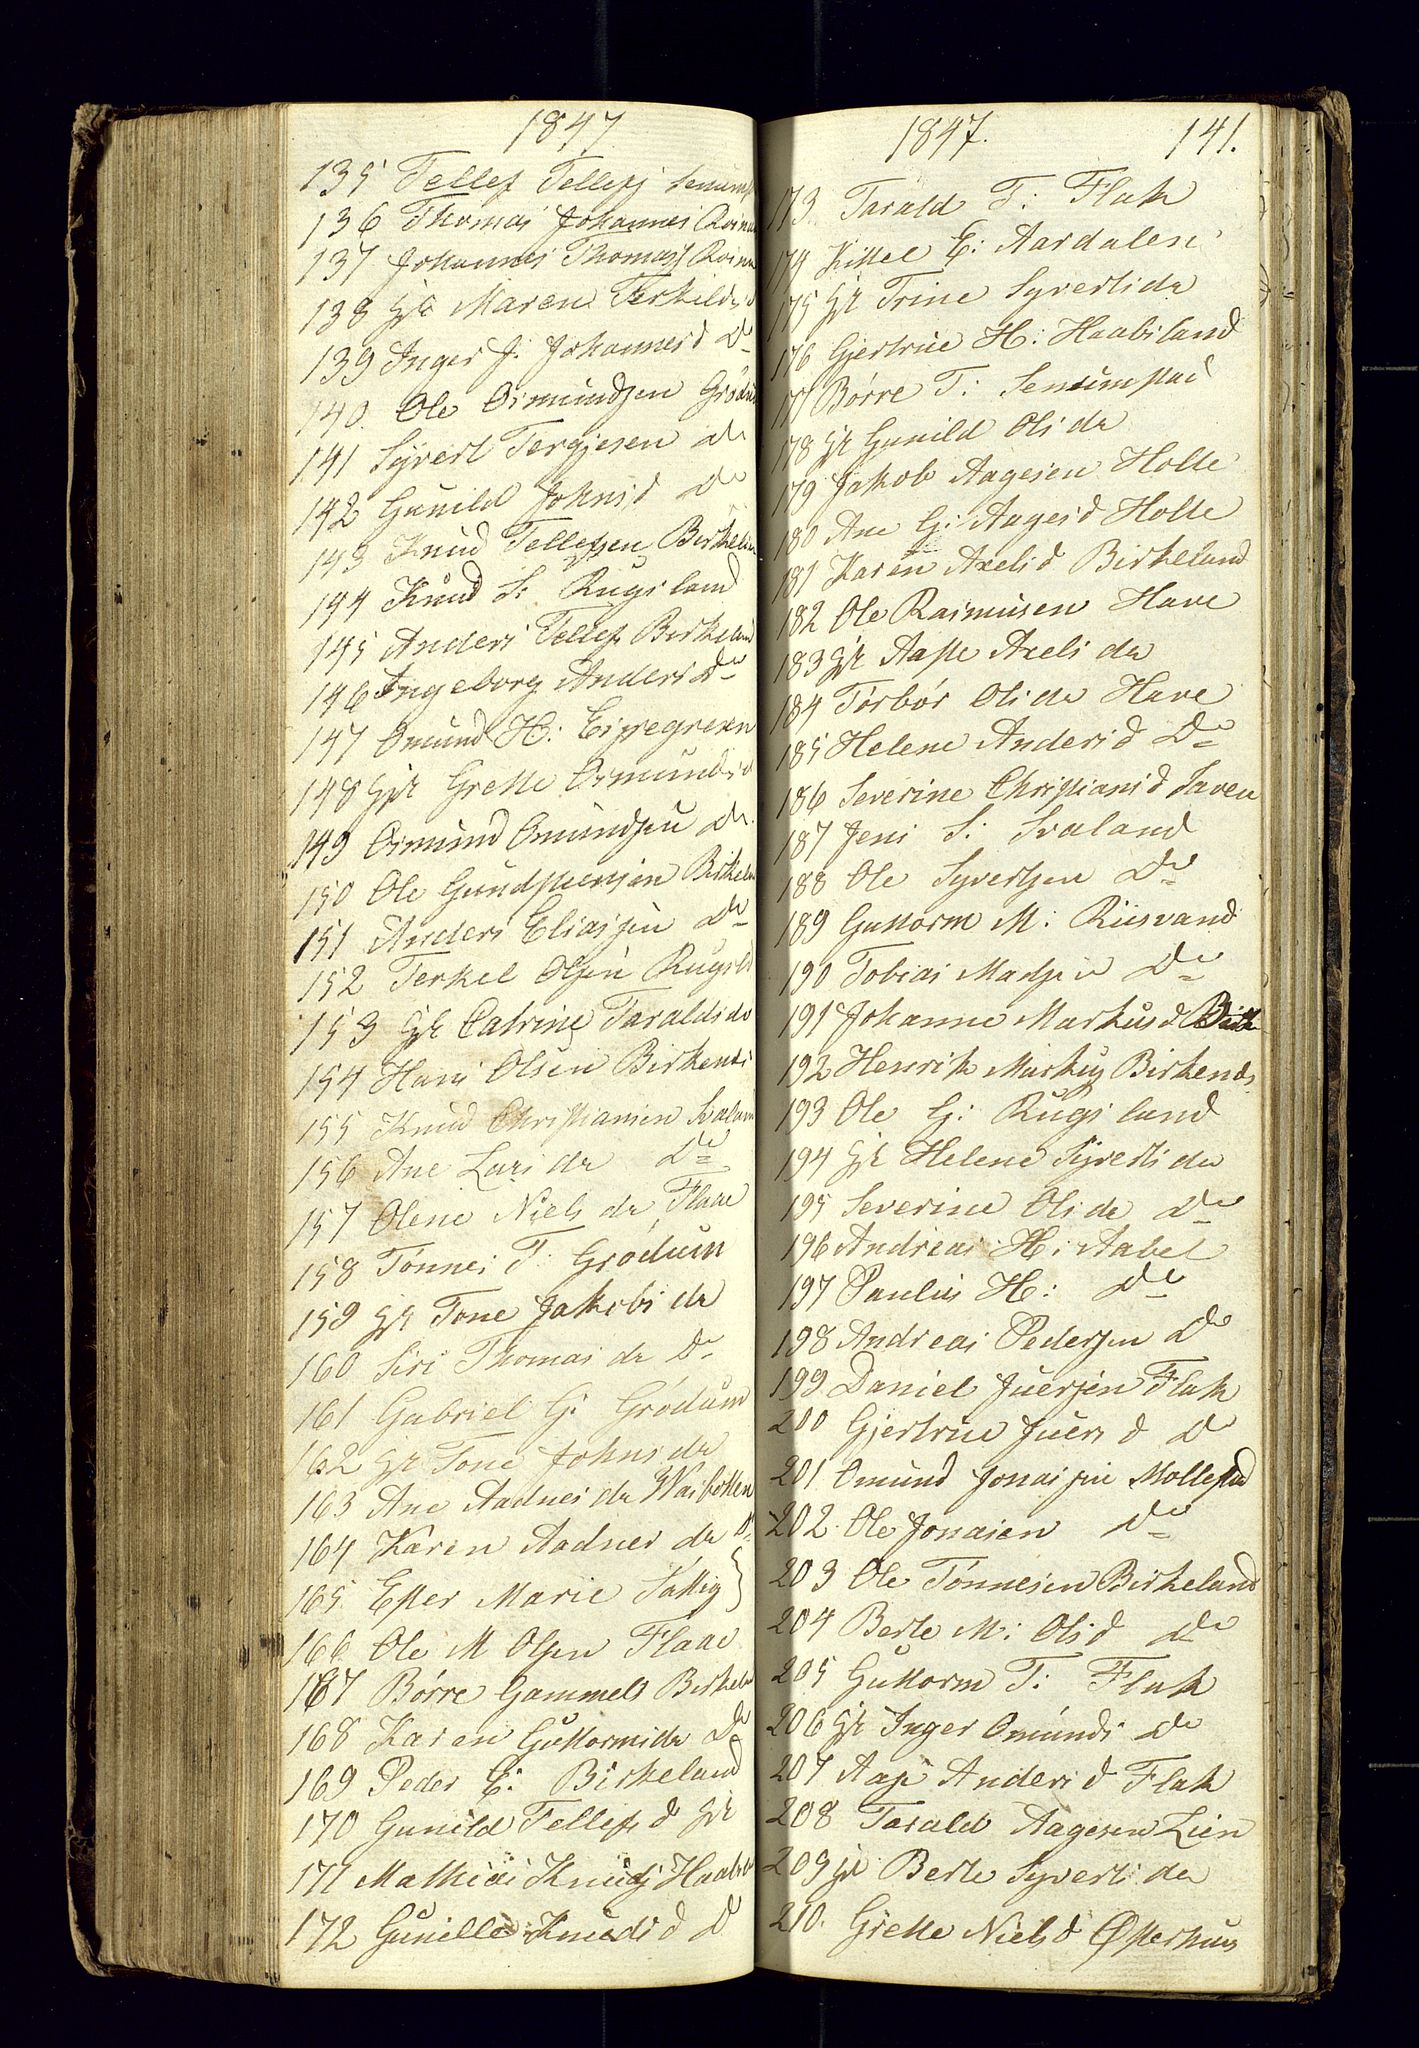 1847
135 Tellef Tellefs Senums
136 Thomas Johannes Roina
137 Johannes Thomass Roina
138 Gf Maren Terkelsd
139 Inger J. Johannesd Do
140. Ole Osmundsen Grødum
141 Syvert Tergjesen do
142 Gunild Johnsd Do
143 Knud Tellefsen Birkelan
144 Knud S: Rugsland
145 Anders Tellefs Birkeland
146 Ingeborg Andersd Do
147 Omund H: Espegreen
148 Gf Grette Osmundsd
149 Osmund Omundsen do.
150 Ole Gundstensen Birkelan
151 Anders Eliassen Do
152 Terkel Olsen Rugsld
153 Gf Catrine Taraldsda
154 Hans Olsen Birkenæs
155 Knud Christiansen Svalan
156 Ane Larsda Do
157 Olene Nielsda Flaae
158 Tønnes T: Grødum
159 Gf Tone Jakobsda
160 Siri Thomasda Do
161 Gabriel G: Grødum
162 Gf Tone Johnsda
163 Ane Aadnesda Waibotten
164 Karen Aadnesda Do
165 Ester Marie Sattig
166 Ole M Olsen Flaae
167 Børre Gammels Birkela
168 Karen Guttormsda Do
169 Peder E: Birkeland
170 Gunild Tellefsd Gf
171 Mathias Knuds Haabes
172 Gunille Knudsd D
1847. 141.
173. Tarald T: Flak
174 Kittel E: Aardalen
175 Gf Trine Syvertsda
176 Gjertrue H: Haabesland
177 Børre T: Senumstad
178 Gf Gunild Olsda
179 Jakob Aagesen Holte
180 Ane G: Aagesd Holte
181 Karen Axelsd Birkeland
182 Ole Rasmusen Have
183 Gf Aaste Axelsda
184 Torbor Olsda Have
185 Helene Andersd Do
186 Severine Christiansd Saven
187 Jens S: Svaland
188 Ole Syvertsen Do
189 Guttorm M: Riisvand
190 Tobias Madsen Do
191 Johanne Markusd Birk
192 Henrik Markus Birkenæs
193 Ole G: Rugsland
194 Gf Helene Syvertsda
195 Severine Olsda Do
196 Andreas H: Aabel
197 Paulus H: Do
198 Andreas Pedersen Do
199 Daniel Juersen Flak
200 Gjertrue Juersd Do
201 Omund Jonassen Mollestad
202. Ole Jonasen Do
203 Ole Tønnesen Birkeland
204 Berte M: Olsd Do
205 Guttorm T: Flak
206 Gf Inger Omunds Do
207 Aase Andersd Flak
208 Tarald Aagesen Lien
209 Gf Berte Syvertsda
210. Grette Nielsd Østerhuus